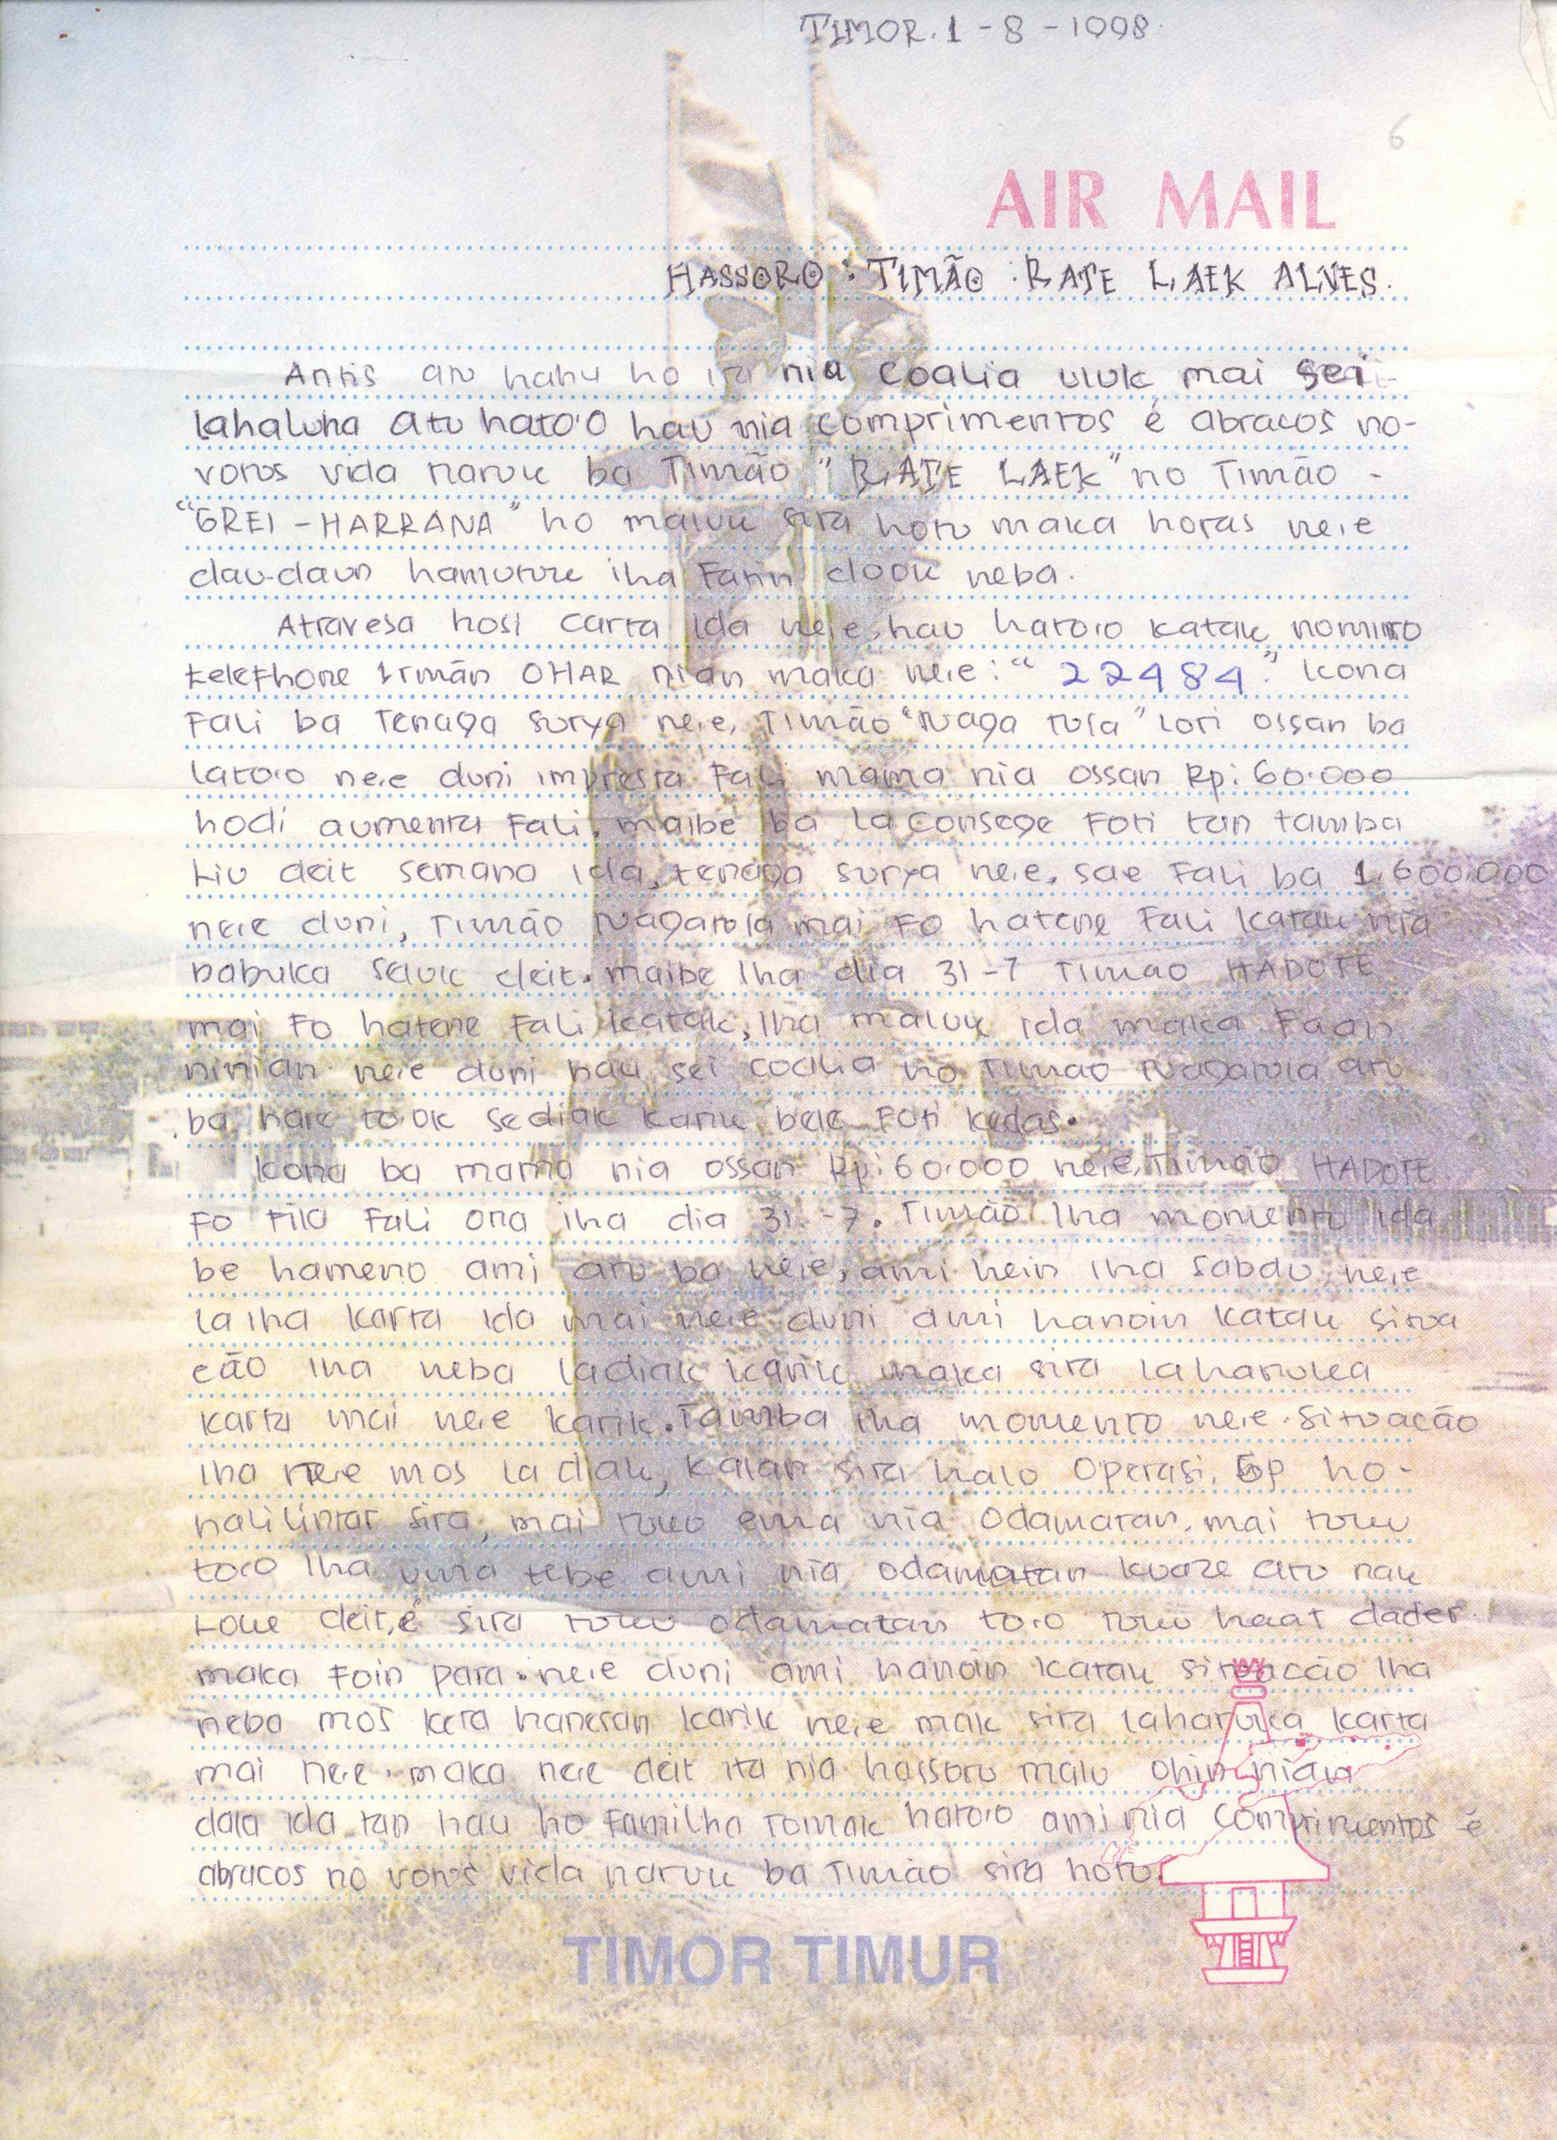 TIMOR. 1 - 8 - 1998.
6
AIR MAIL
HASSORO : TIMÃO : RATE LAEK ALVES.
Antis atu hahu ho ita nia coalia uluk mai sei
lahaluha atu hato'o hau nia comprimentos é abracos no-
votos vida naruk ba Timão "RATE LAEK" no Timão -
"GREI - HARRANA" ho maluk sira hotu maka horas ne.e
dau-daun hamutuk iha Fatin dook neba.
Atravesa hosi carta ida ne.e, hau hato.o katak nomiro
telefhone Irmãn OHAR nian maka ne.e : "22484". kona
Fali ba Tenaga surya ne.e, Timão "Naga tula" lori ossan ba
lato.o ne.e duni impresta Fali mama nia ossan Rp: 60.000
hodi aumenta Fali, maibé ba la consege Foti tan tamba
Liu deit semana ida, tenaga surya ne.e. sae Fali ba 1.600.000
ne.e duni, Timão Nagatula mai Fo hatene Fali katak nia
babuka seluk deit. maibe iha dia 31 - 7 Timao HADOTE
mai Fo hatene Fali katak, iha maluk ida maka Faan
ninian ne.e duni hau sei coalia no Timao Nagatula atu
ba hare to.ok se diak karik bele Foti kedas.
kona ba mama nia ossan Rp: 60.000 ne.e, Timão HADOTE
Fo Fila Fali ona iha dia 31 - 7. Timão iha momento ida
be hameno ami atu ba ne.e, ami hein iha sabdu ne.e
la iha karta ida mai ne.e duni ami hanoin katak situa
cão iha neba ladiak karik maka sira laharuka
karta mai ne.e karik. Tamba iha momento ne.e situacão
iha ne.e mos la diak, kalan sira halo operasi, ho-
halilintar sira, mai tuku ema nia odamatan, mai tuku
to.o iha uma tebe ami nia odamatan kuaze atu nak
Loke deit, é sira tuku odamatan to.o tuku haat dader
maka Foin para. ne.e duni ami hanoin katak situacão iha
neba mos kera hanesan karik ne.e mak sira laharuka karta
mai ne.e. maka ne.e deit ita nia hassoru malu ohin nian
dala ida tan hau ho Familha tomak hato.o ami nia comprimentos é
abracos no votos vida naruk ba Timão sira hotu.
TIMOR TIMUR